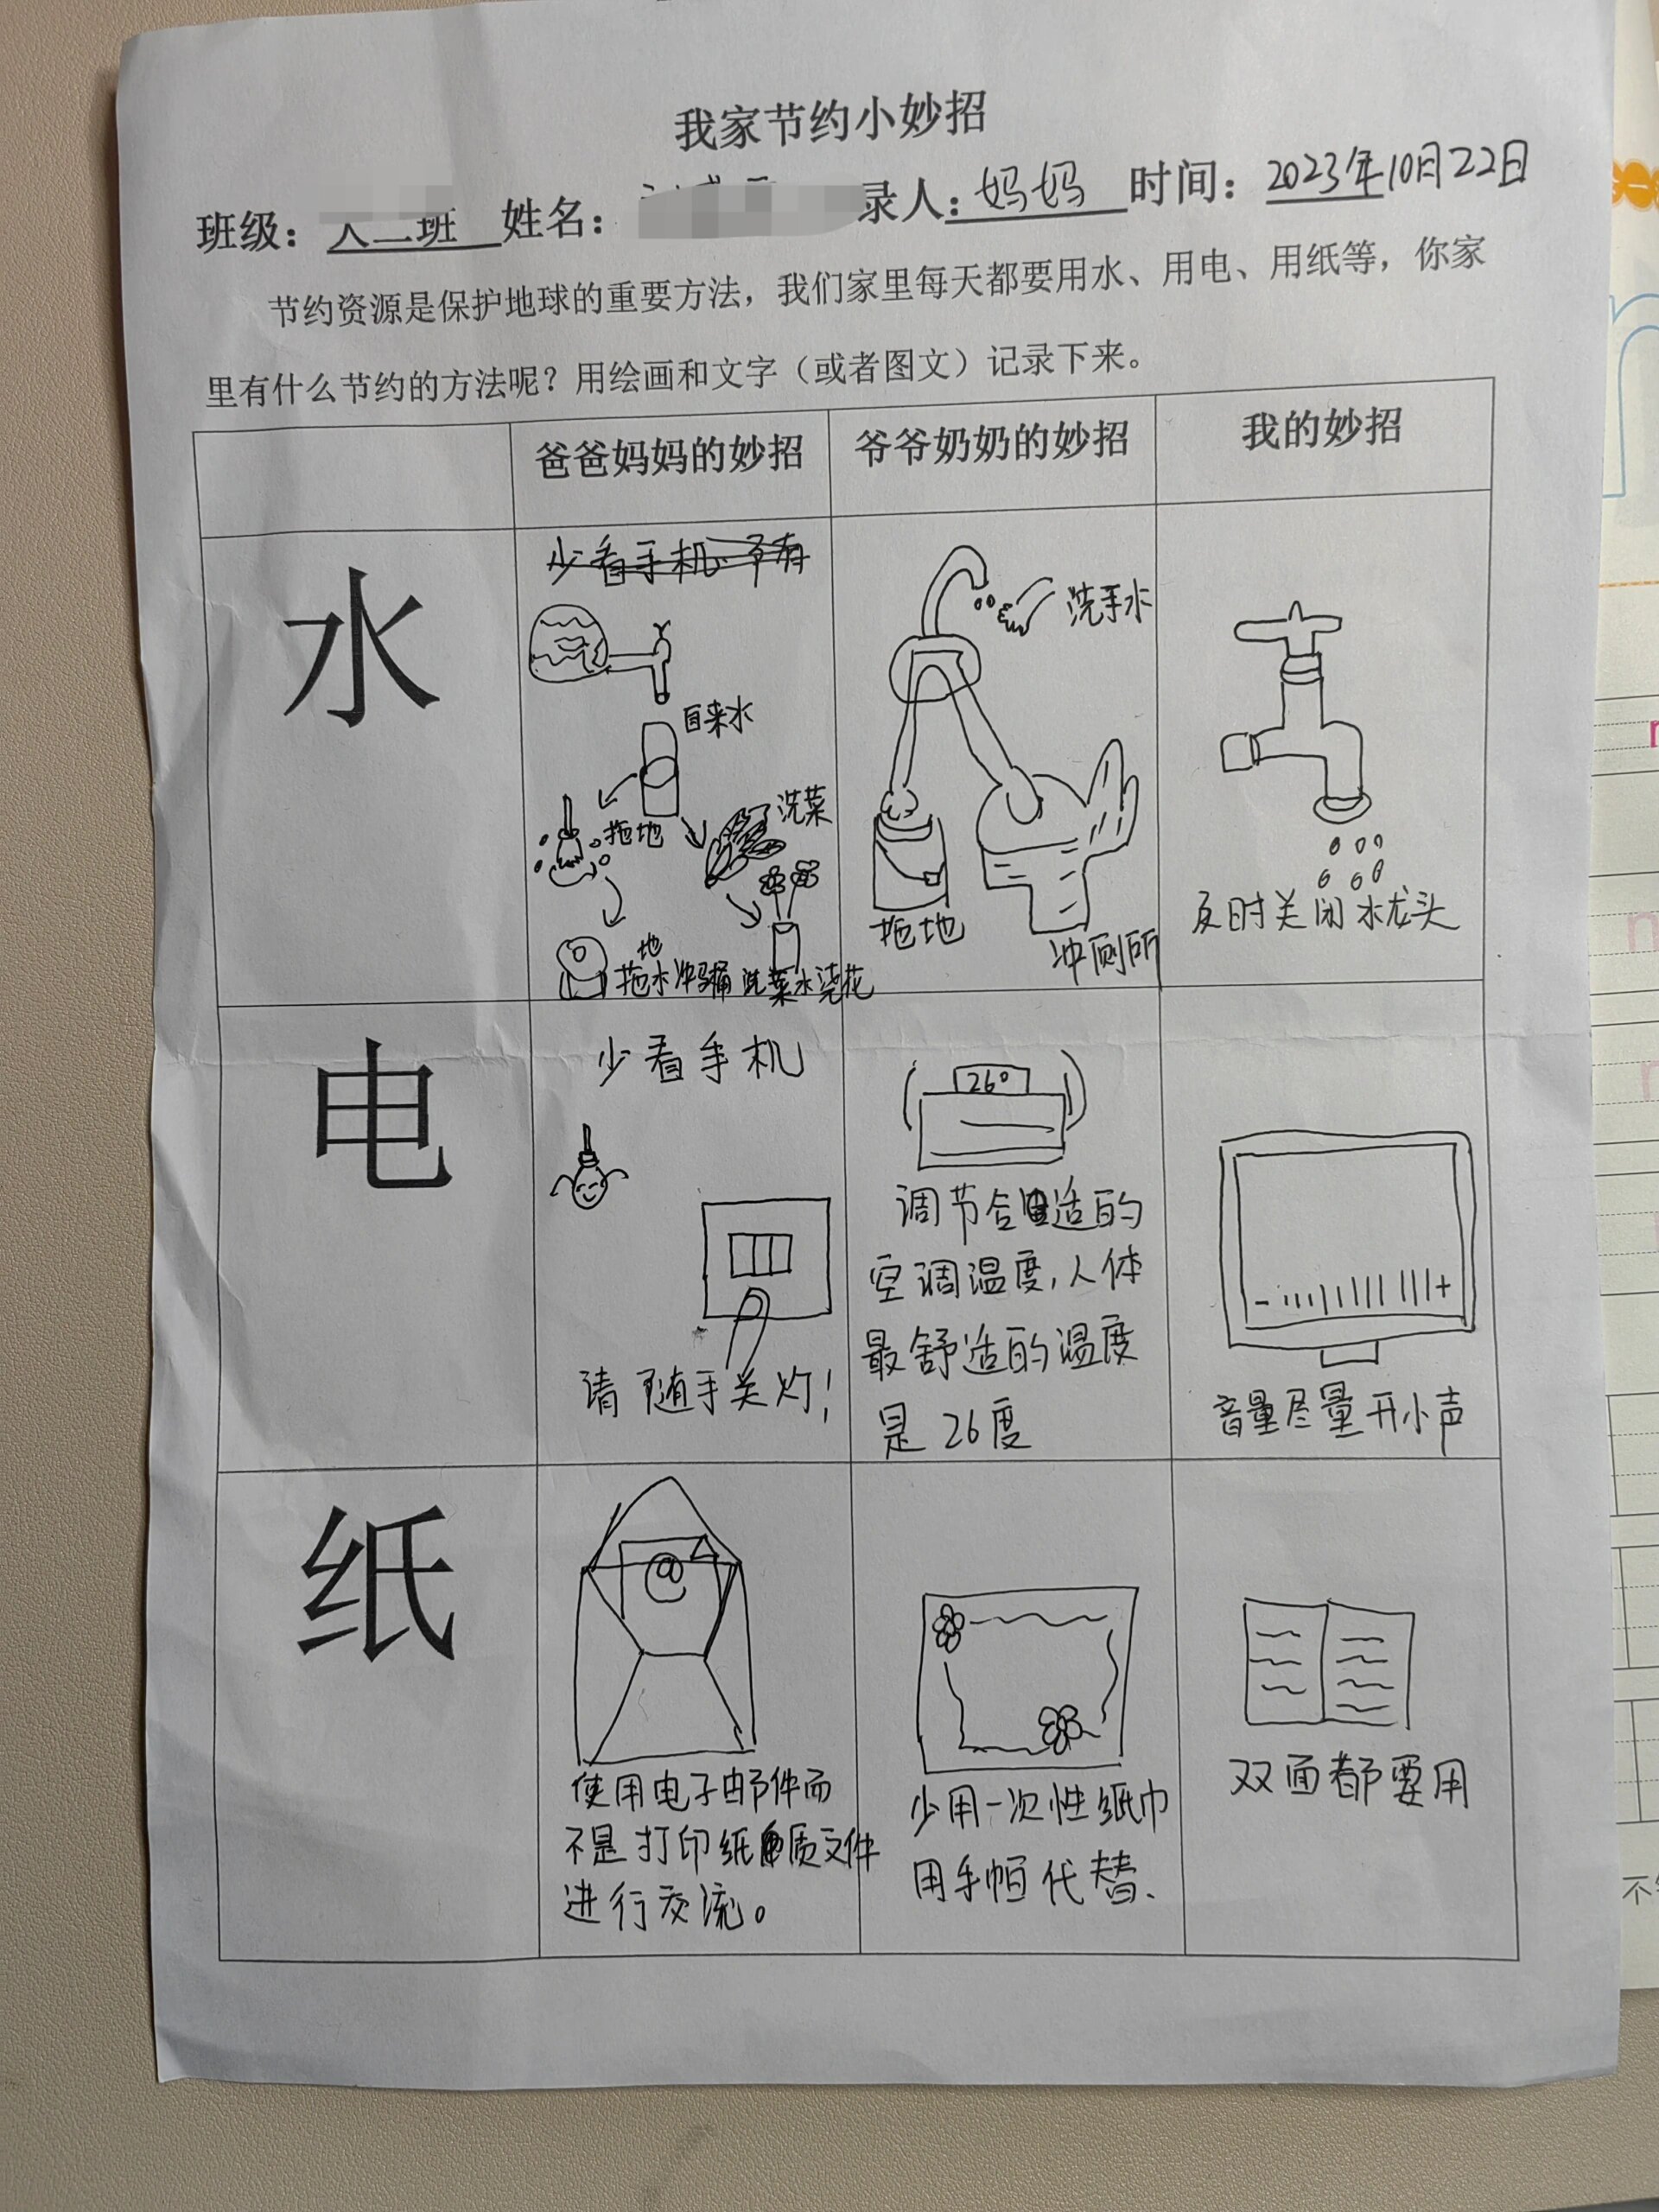 我家节约小妙招
班级： 大二班 姓名： 录人：妈妈 时间：2023年10月22日
节约资源是保护地球的重要方法，我们家里每天都要用水、用电、用纸等，你家
里有什么节约的方法呢？用绘画和文字（或者图文）记录下来。
爸爸妈妈的妙招 爷爷奶奶的妙招 我的妙招
水
少看手机
自来水
拖地
洗菜
拖地水冲马桶 洗菜水浇花
洗手水
拖地
冲厕所
及时关闭水龙头
电
少看手机
请随手关灯！
26°
调节合适的
空调温度，人体
最舒适的温度
是26度
- +
音量尽量开小声
纸
@
使用电子邮件而
不是打印纸质文件
进行交流。
少用一次性纸巾
用手帕代替、
双面都要用